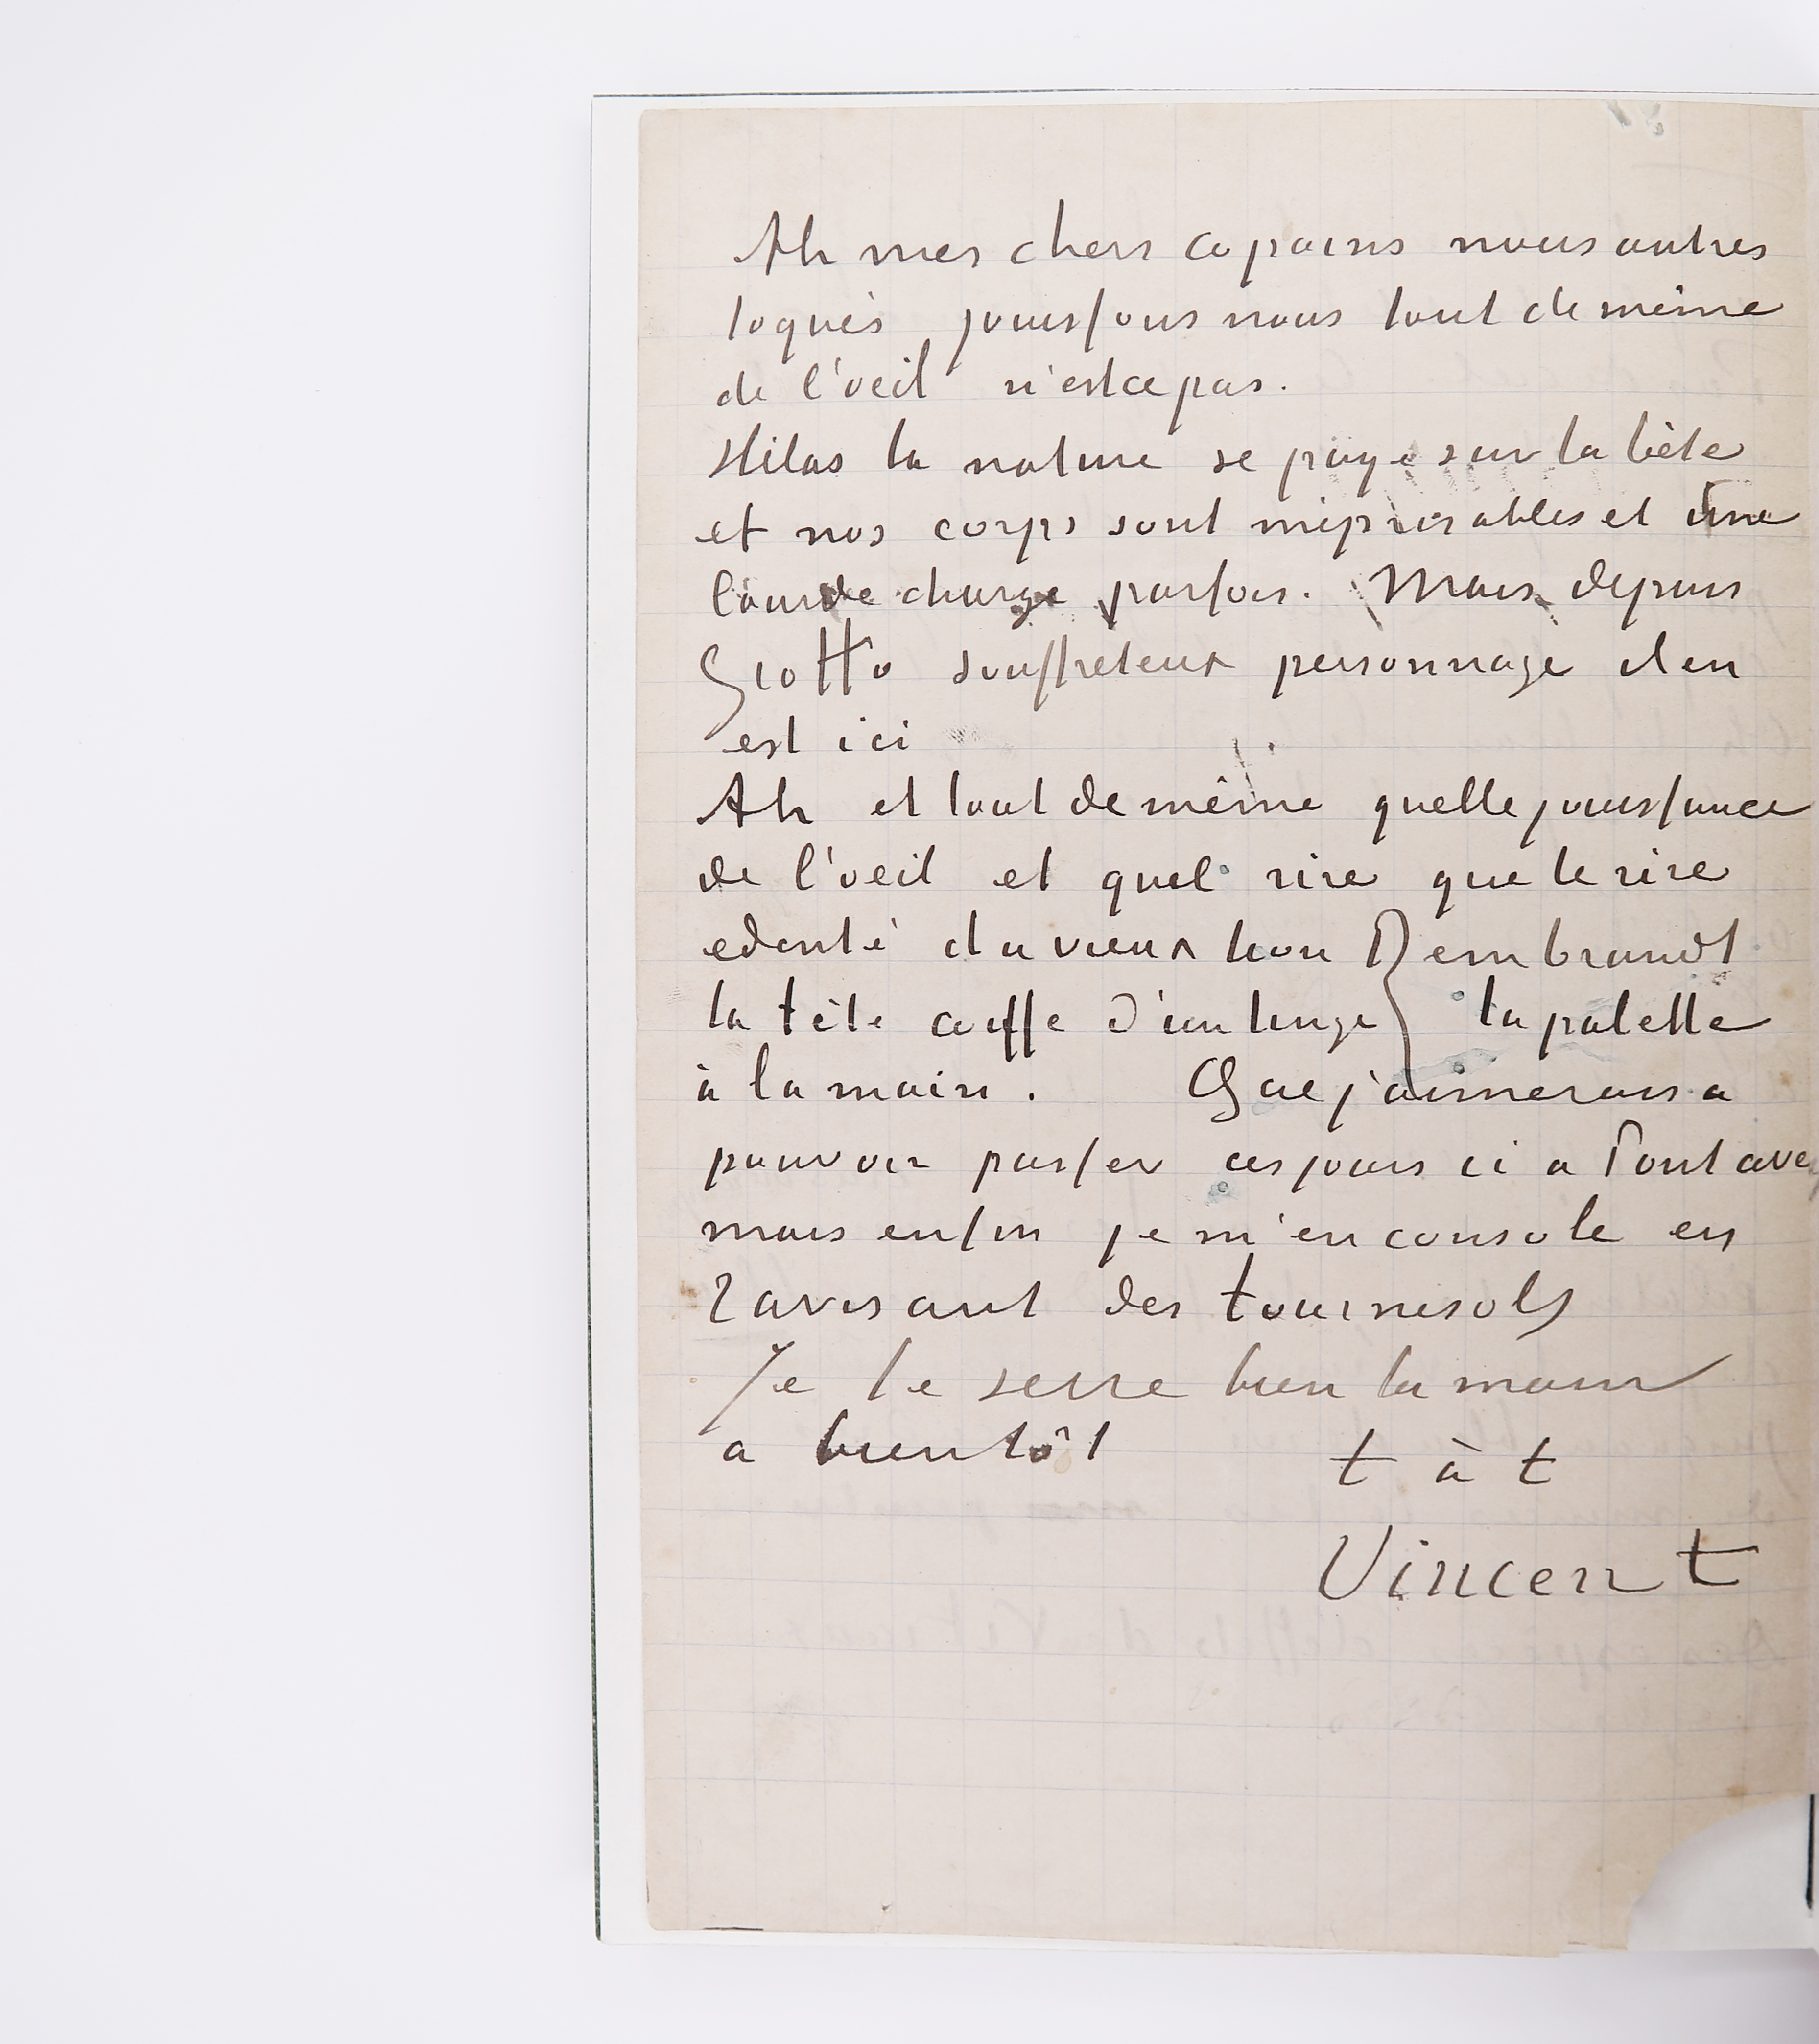 Ah mes chers copains nous autres
toqués jouissons nous tout de même
de l'oeil n'est ce pas.
Hélas la nature se paye sur la bête
et nos corps sont méprisables et une
lourde charge parfois. Mais depuis
Giotto souffreteux personnage il en
est ici
Ah et tout de même quelle jouissance
de l'oeil et quel rire que le rire
edenté du vieux lion Rembrandt
la tête coiffe d'un linge la palette
à la main. Que j'aimerais a
pouvoir passer ces jours ci a Pont aven
mais enfin je m'en console en
ravisant des tournesols
Je te serre bien la main
a bientôt t à t
Vincent